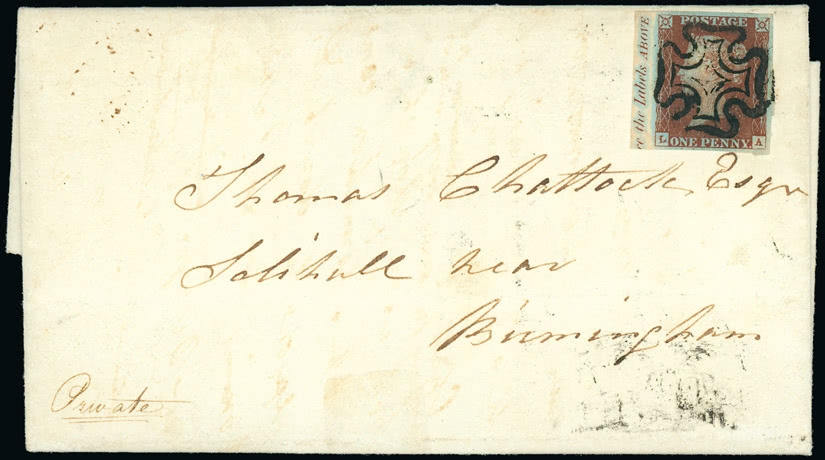 ce the Labels ABOVE
POSTAGE
L A
ONE PENNY
Thomas Chattock, Esqr
Solihull near
Birmingham
Private